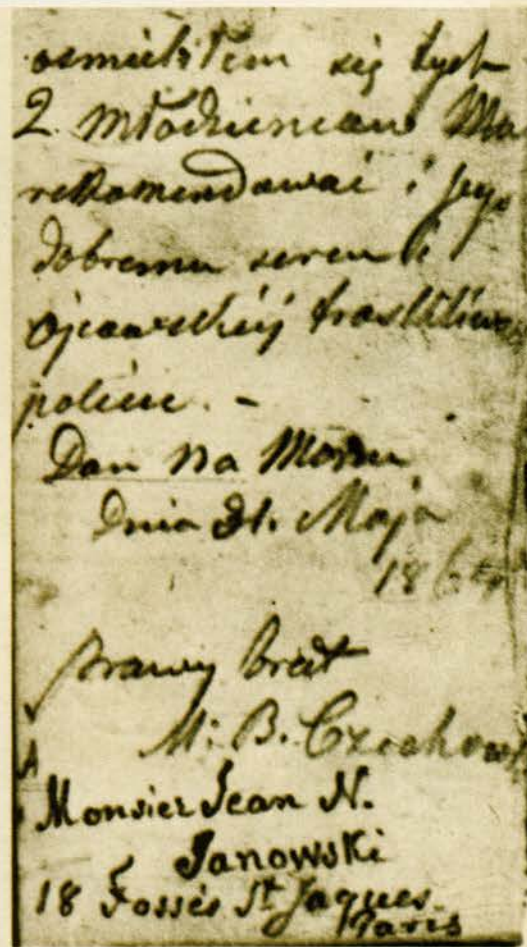 ośmieliłem się tych
2. młodzieńców
rekomendować i jego
dobremu sercu i
ojcowskiéj troskliwo
polecić. -
Dan na Morzu
dnia 31. Maja
186
prawy brat
M. B. Czechows
Monsier Jean N.
Janowski
18 Fossés St Jaques.
Paris